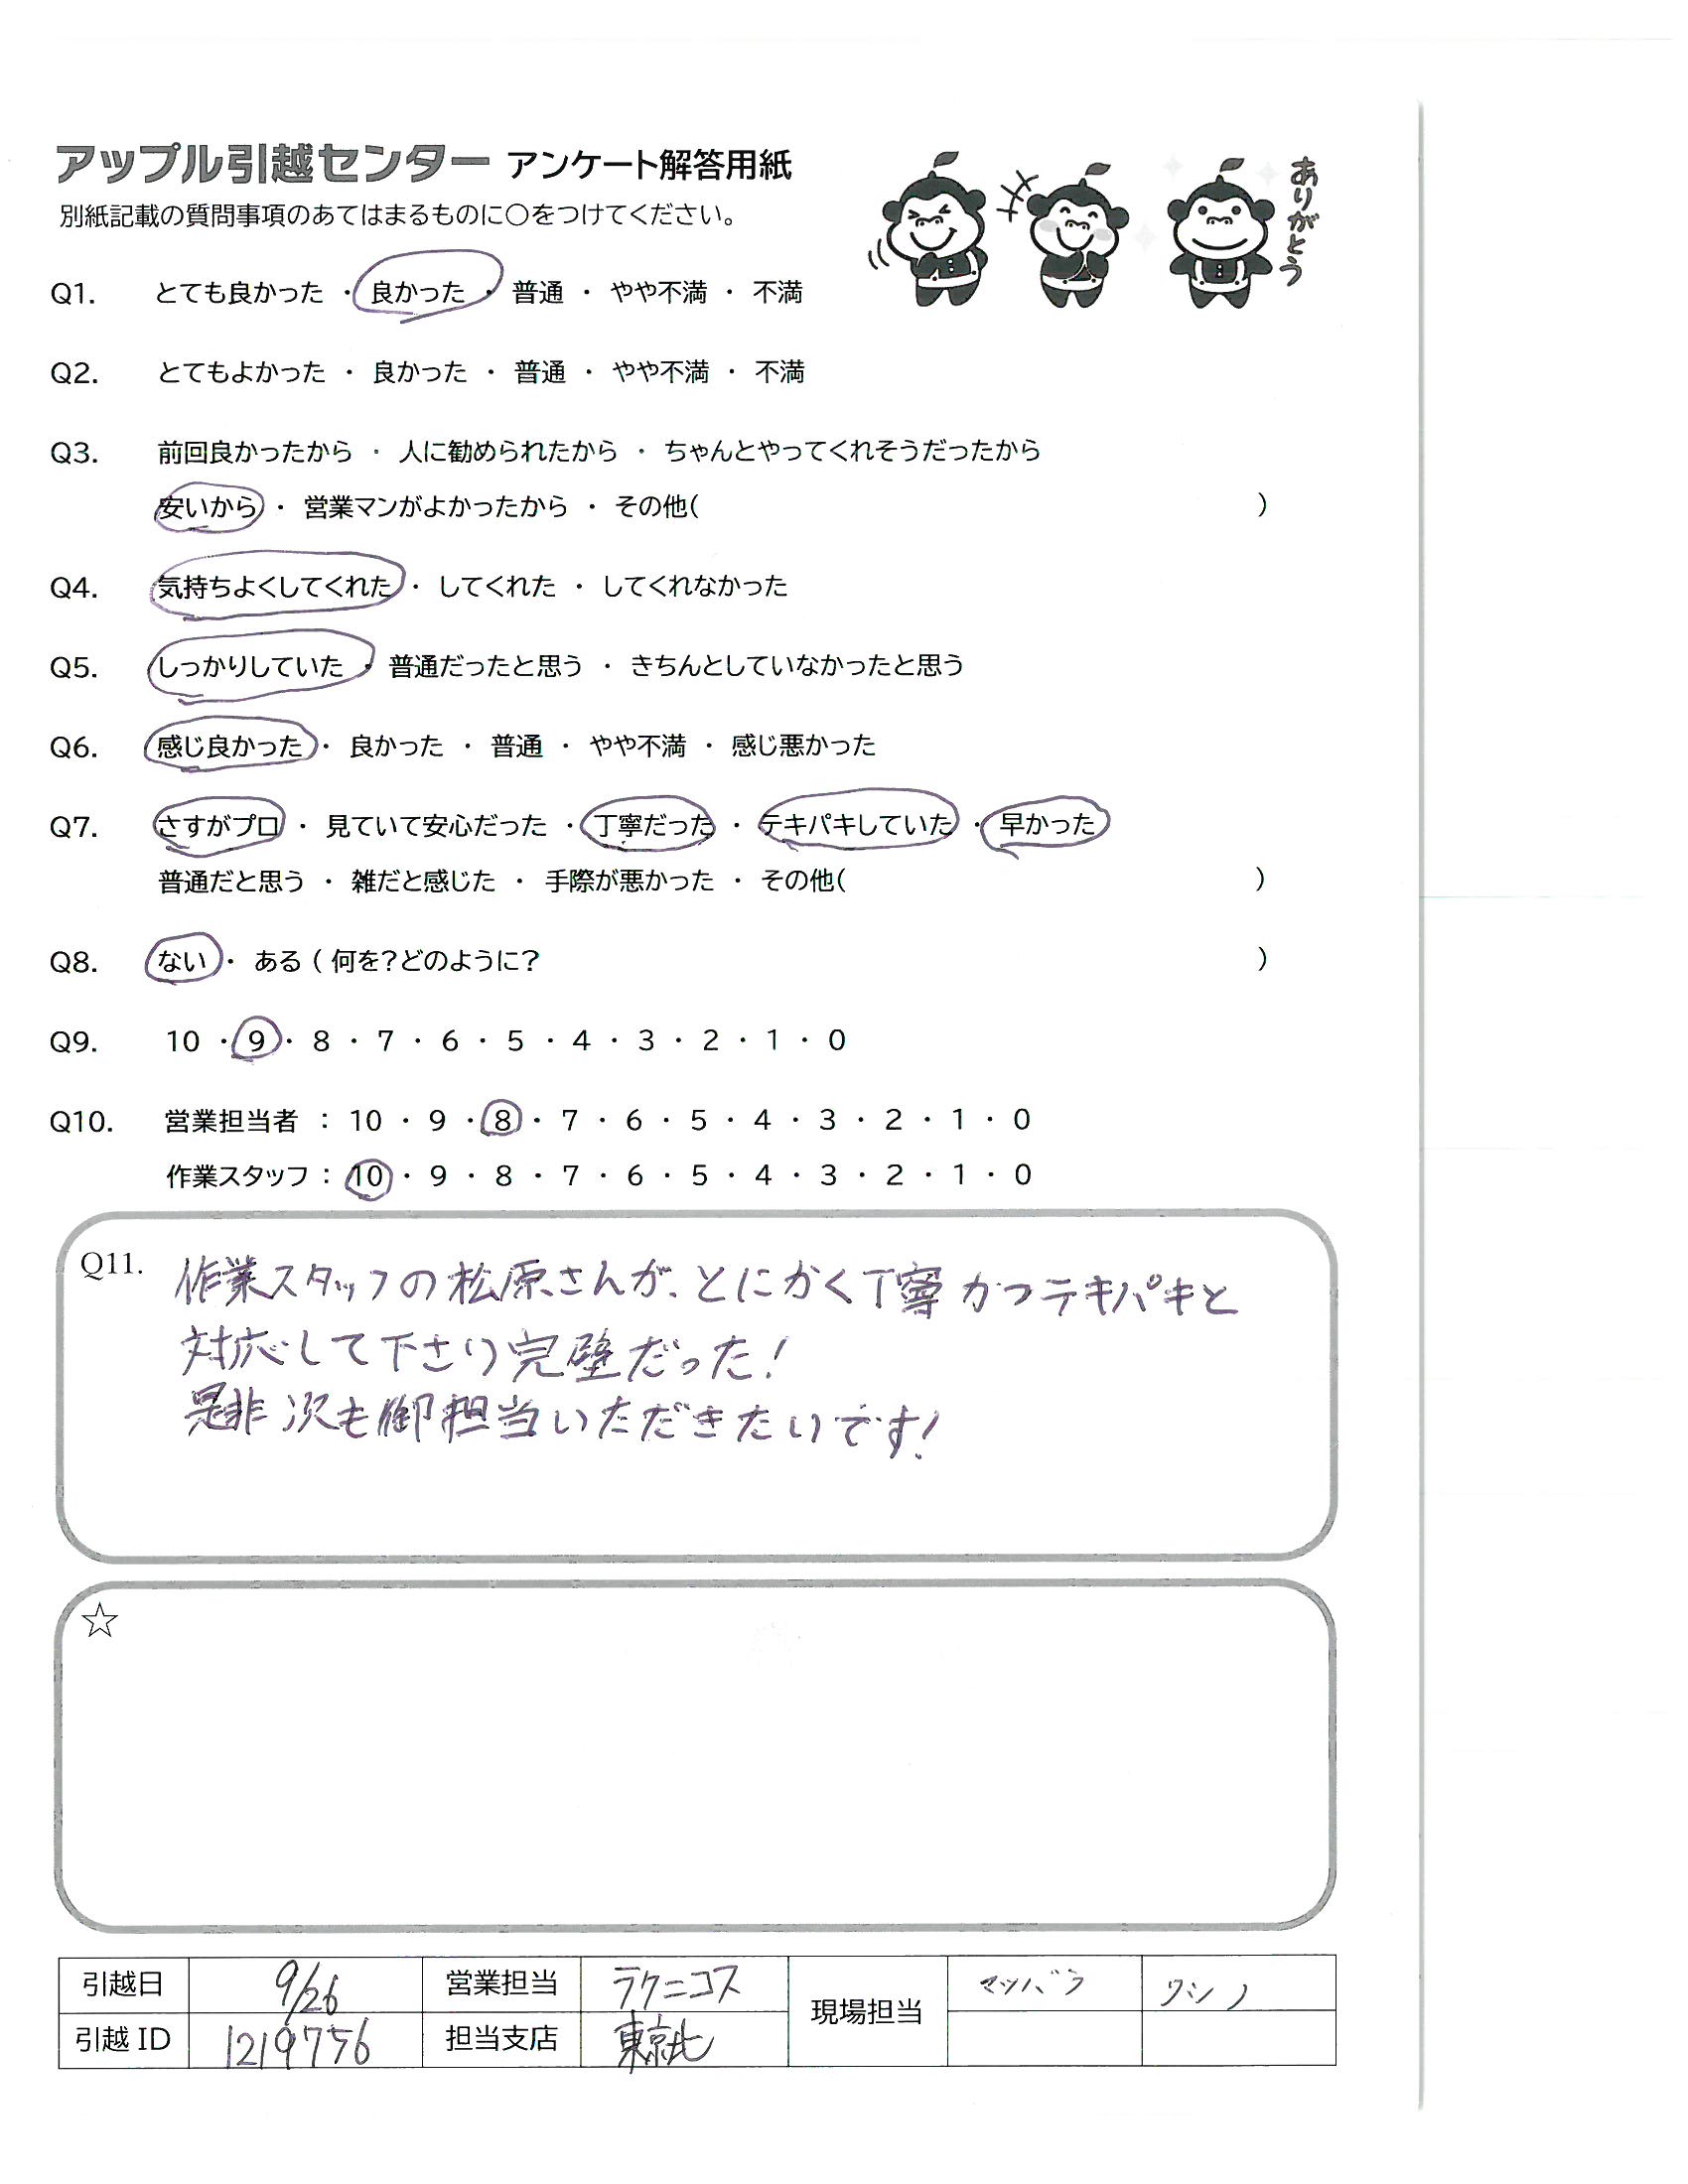 アップル引越センター アンケート解答用紙
ありがとう
別紙記載の質問事項のあてはまるものに○をつけてください。
Q1. とても良かった ・ 良かった ・ 普通 ・ やや不満 ・ 不満
Q2. とてもよかった ・ 良かった ・ 普通 ・ やや不満 ・ 不満
Q3. 前回良かったから ・ 人に勧められたから ・ ちゃんとやってくれそうだったから
安いから ・ 営業マンがよかったから ・ その他( )
Q4. 気持ちよくしてくれた ・ してくれた ・ してくれなかった
Q5. しっかりしていた ・ 普通だったと思う ・ きちんとしていなかったと思う
Q6. 感じ良かった ・ 良かった ・ 普通 ・ やや不満 ・ 感じ悪かった
Q7. さすがプロ ・ 見ていて安心だった ・ 丁寧だった ・ テキパキしていた ・ 早かった
普通だと思う ・ 雑だと感じた ・ 手際が悪かった ・ その他( )
Q8. ない ・ ある ( 何を?どのように? )
Q9. 10 ・ 9 ・ 8 ・ 7 ・ 6 ・ 5 ・ 4 ・ 3 ・ 2 ・ 1 ・ 0
Q10. 営業担当者 : 10 ・ 9 ・ 8 ・ 7 ・ 6 ・ 5 ・ 4 ・ 3 ・ 2 ・ 1 ・ 0
作業スタッフ : 10 ・ 9 ・ 8 ・ 7 ・ 6 ・ 5 ・ 4 ・ 3 ・ 2 ・ 1 ・ 0
Q11. 作業スタッフの松原さんが、とにかく丁寧かつテキパキと
対応して下さり完璧だった!
是非次も御担当いただきたいです!
☆
引越日 9/26 営業担当 ラクニコス 現場担当 マツバラ ワシノ
引越ID 1219756 担当支店 東京北